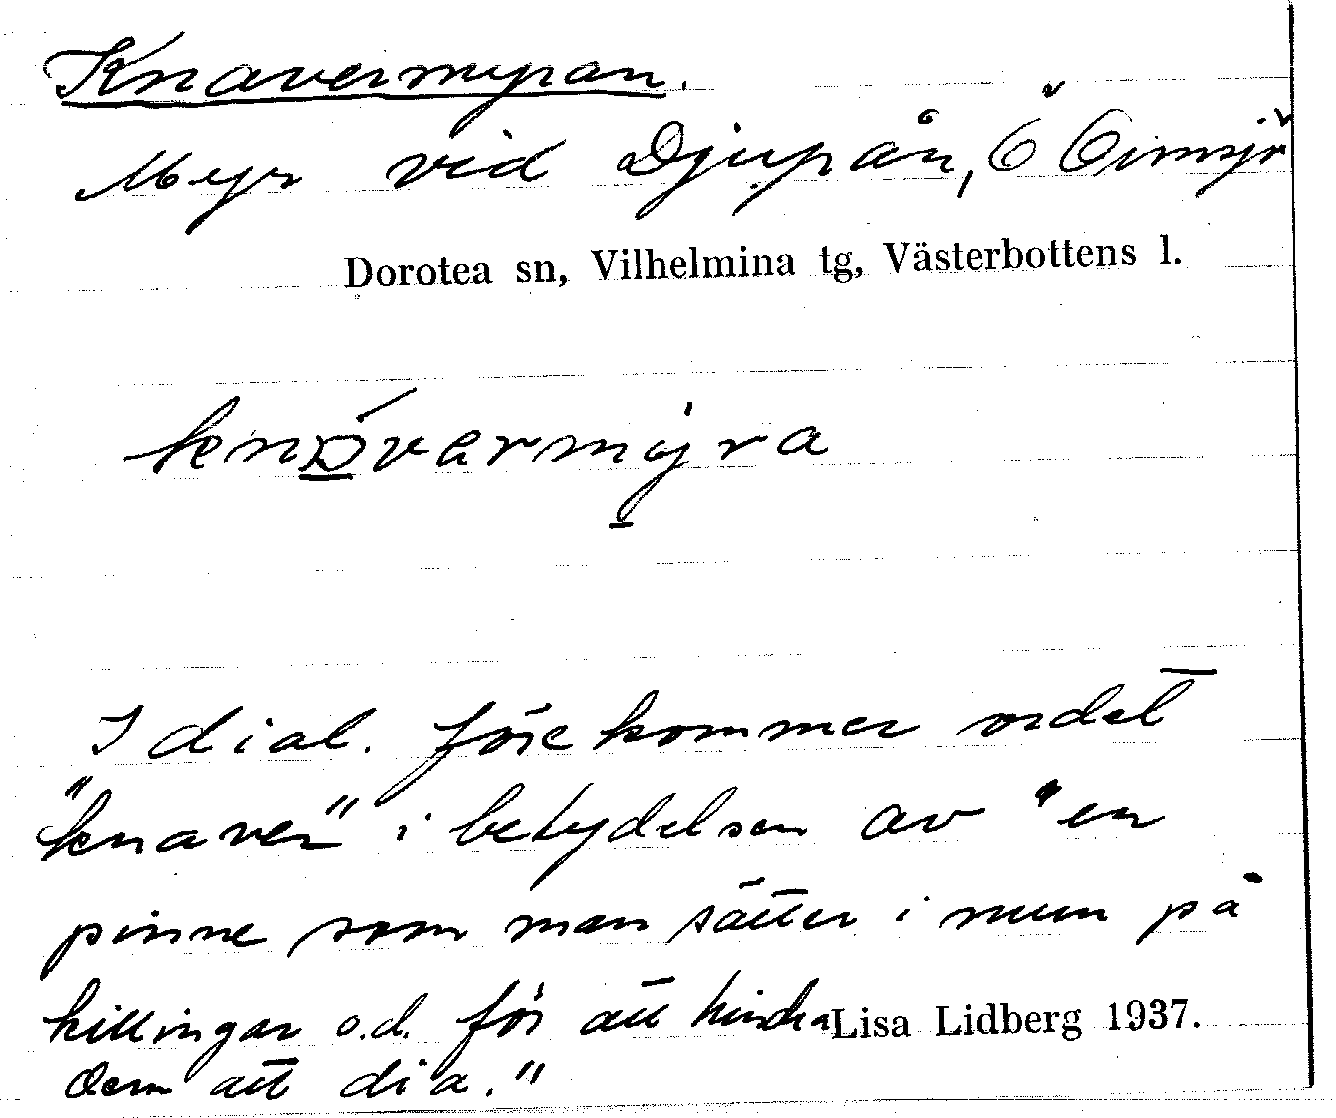 Knavermyran.
Myr vid Djupån, Ö Ormsjö
Dorotea sn, Vilhelmina tg, Västerbottens l.
I dial. förekommer ordet
"knaver" i betydelsen av "en
pinne som man sätter i mun på
killingar o.d. för att hindra
Lisa Lidberg 1937.
dem att dia."